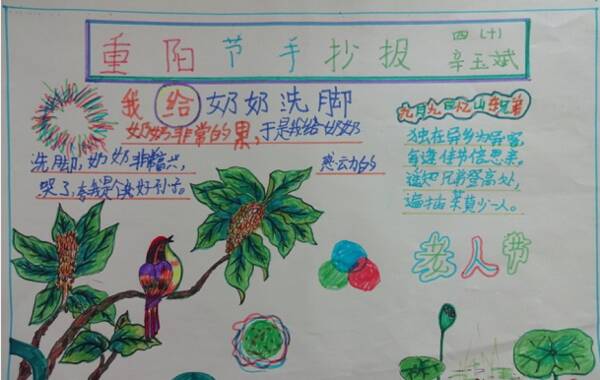 重阳节手抄报
四(十)
辛玉斌
我给奶奶洗脚
奶奶非常的累,于是我给奶奶
洗脚,奶奶非常高兴, 感动的
哭了,夸我是个好孙子。
九月九日忆山东兄弟
独在异乡为异客,
每逢佳节倍思亲。
遥知兄弟登高处,
遍插茱萸少一人。
老人节